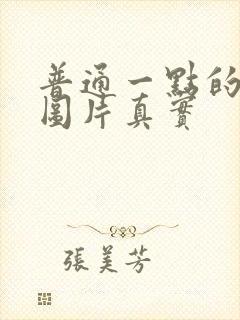 普通一點的
圖片真實
張美芳